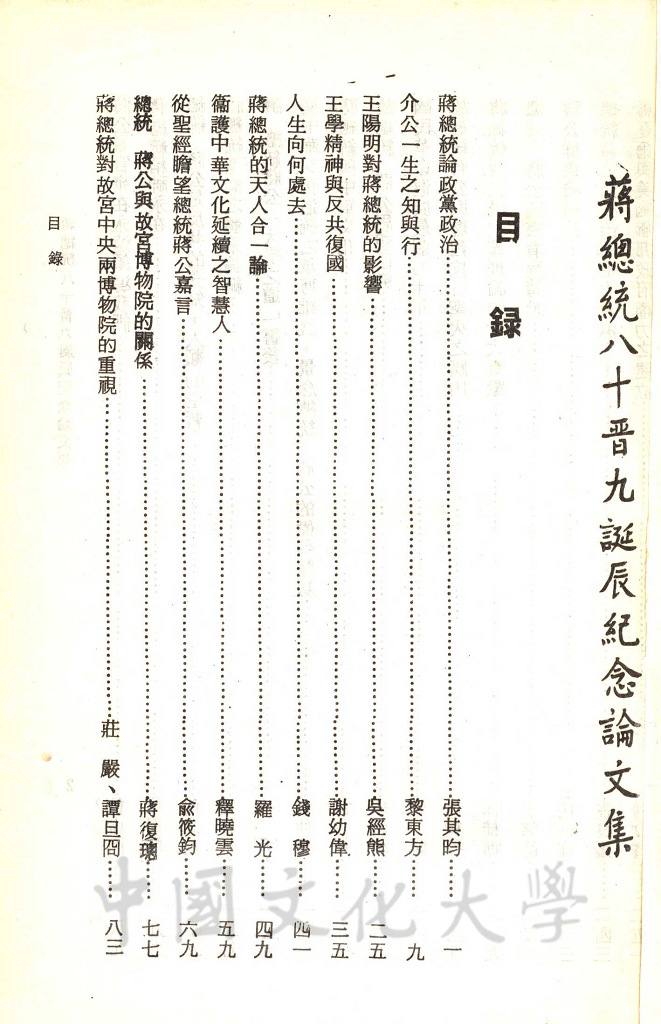 蔣總統八十晋九誕辰紀念論文集
目錄
蔣總統論政黨政治……張其昀……一
介公一生之知與行……黎東方……九
王陽明對蔣總統的影響……吳經熊……二五
王學精神與反共復國……謝幼偉……三五
人生向何處去……錢　穆……四一
蔣總統的天人合一論……羅　光……四九
衞護中華文化延續之智慧人……釋曉雲……五九
從聖經瞻望總統蔣公嘉言……俞筱鈞……六九
總統　蔣公與故宮博物院的關係……蔣復璁……七七
蔣總統對故宮中央兩博物院的重視……莊　嚴、譚旦冏……八三
目錄
中國文化大學